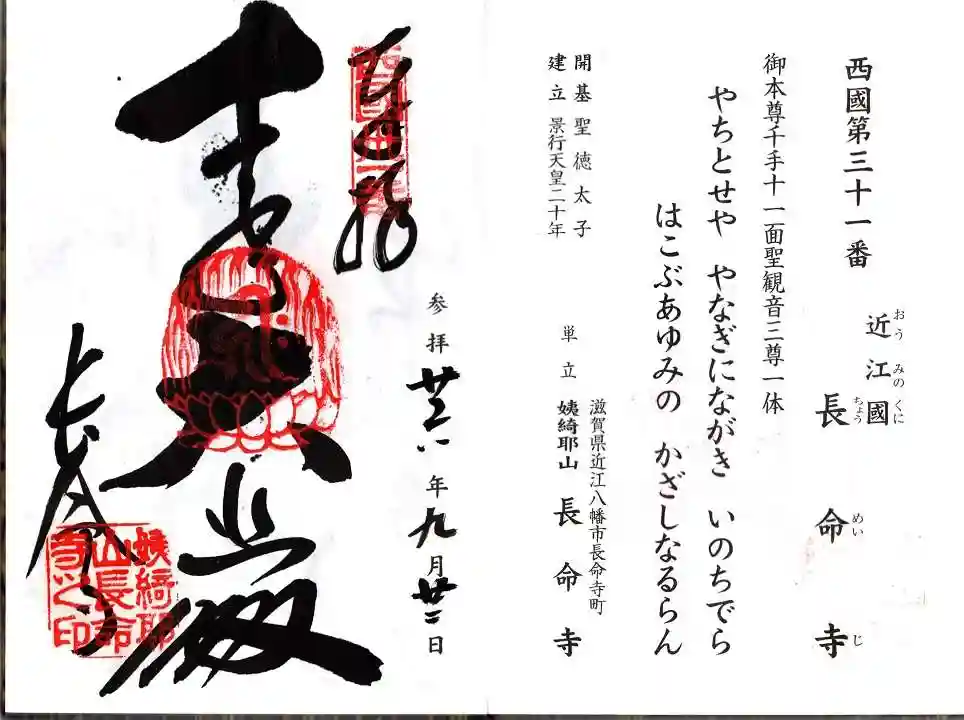 西國第三十一番
おうみのくに
近江國
ちょうめいじ
長命寺
御本尊千手十一面聖観音三尊一体
やちとせや やなぎにながき いのちでら
はこぶあゆみの かざしなるらん
開基聖徳太子
建立景行天皇二十年
滋賀県近江八幡市長命寺町
単立 姨綺耶山 長命寺
参拝 廿六年九月廿二日
姨綺耶
山長命
寺之印